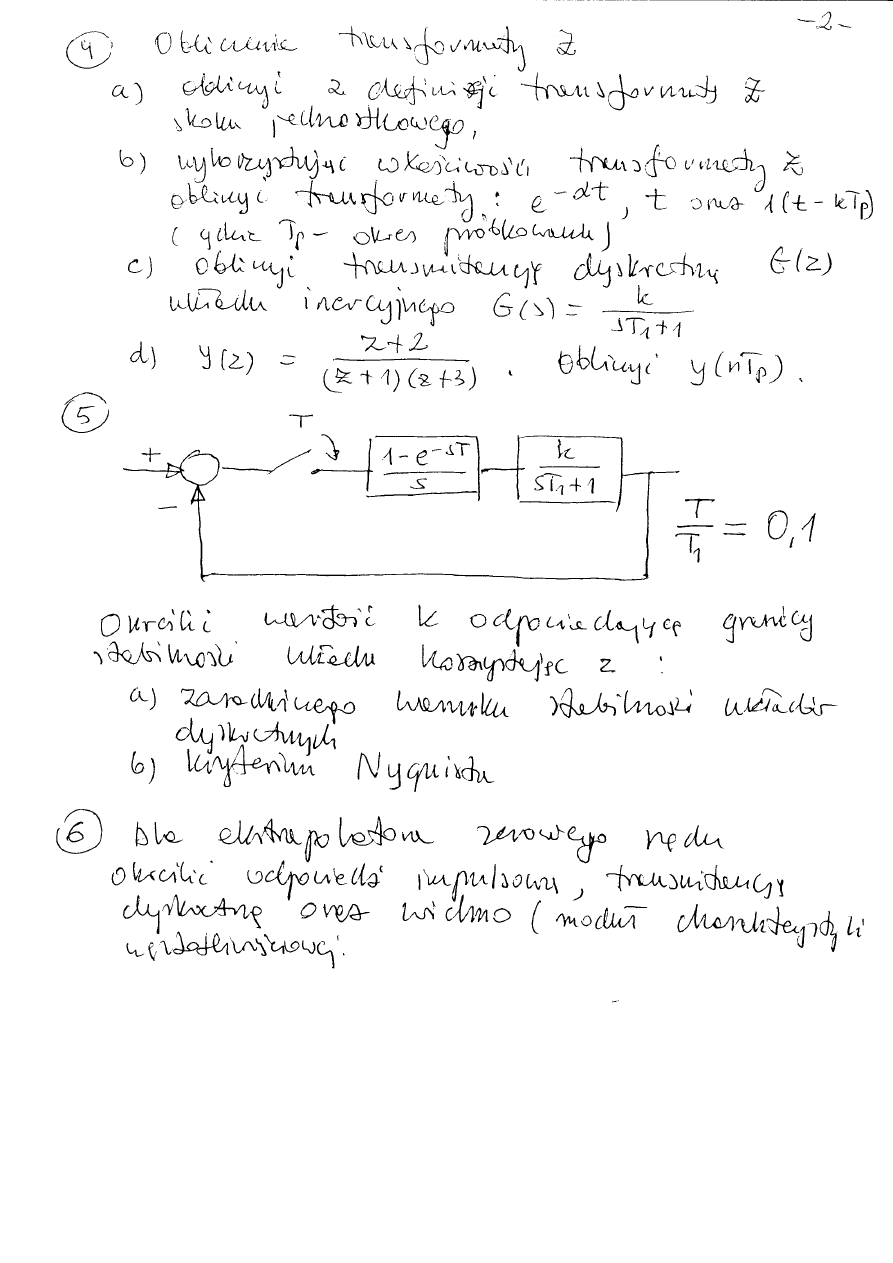 -2-
④ Obliczenie transformaty Z
a) obliczyć z definicji transformatę Z
skoku jednostkowego,
b) wykorzystując właściwości transformaty Z
obliczyć transformaty: e^{-αt}, t oraz 1(t-kTp)
(gdzie Tp - okres próbkowania)
c) obliczyć transmitancję dyskretną G(z)
układu inercyjnego G(s) = k/(sT₁+1)
d) y(z) = (z+2)/((z+1)(z+3)). Obliczyć y(nTp).
⑤
T
+ (1-e^{-sT})/s k/(sT₁+1)
-
T/T₁ = 0,1
Określić wartość k odpowiadającą granicy
stabilności układu korzystając z :
a) zasadniczego warunku stabilności układów
dyskretnych
b) kryterium Nyquista
⑥ Dla ekstrapolatora zerowego rzędu
określić odpowiedź impulsową, transmitancję
dyskretną oraz widmo (moduł charakterystyki
częstotliwościowej.